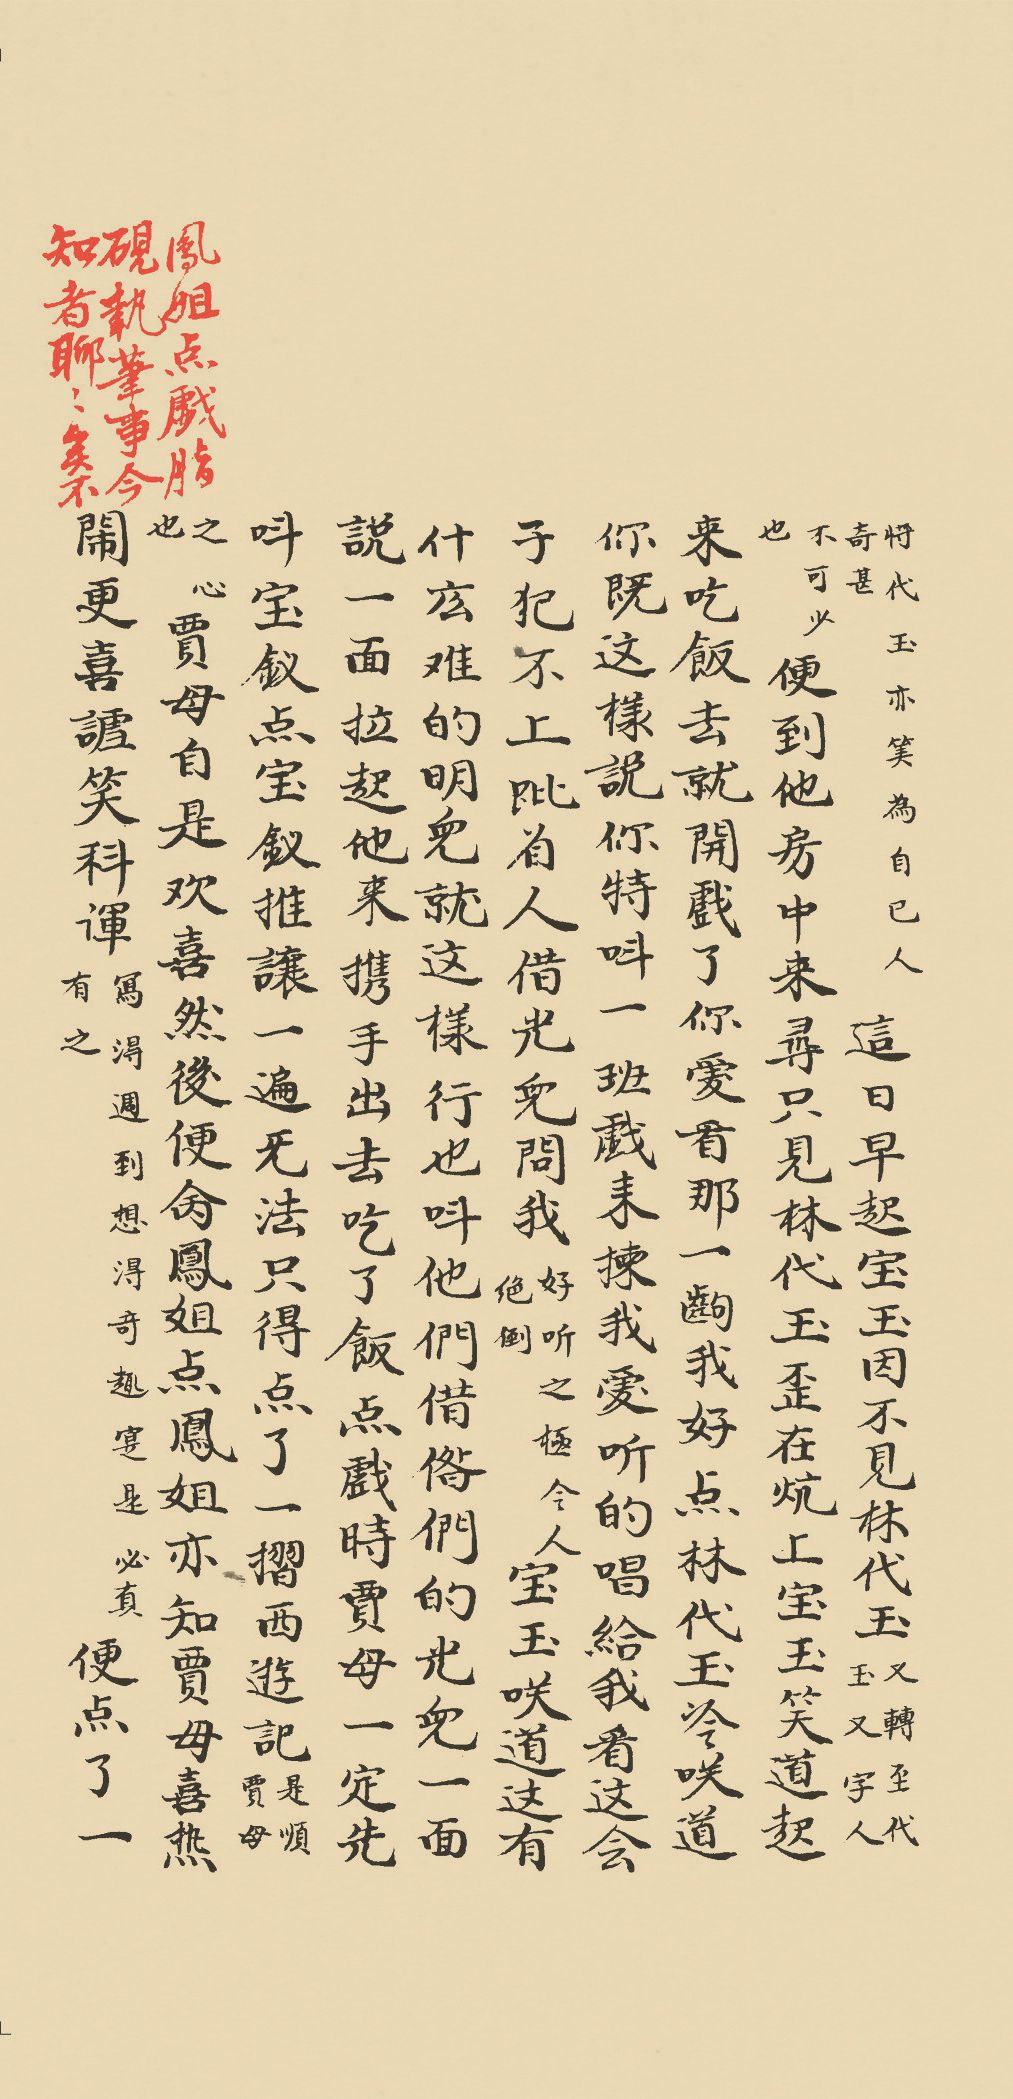 将代玉亦笑為自己人
奇甚
這日早起宝玉因不見林代玉
又轉至代
玉又字人
不可少
也
便到他房中来尋只見林代玉歪在炕上宝玉笑道起
来吃飯去就開戲了你愛看那一齣我好点林代玉冷咲道
你既这樣説你特呌一班戲来揀我愛听的唱給我看这会
子犯不上跐着人借光兒問我
好听之極令人
绝倒
宝玉咲道这有
什庅难的明兒就这樣行也呌他們借偺們的光兒一面
説一面拉起他来携手出去吃了飯点戲時賈母一定先
呌宝釵点宝釵推讓一遍无法只得点了一摺西遊記
是順
賈母
之心
也
賈母自是欢喜然後便命鳳姐点鳳姐亦知賈母喜热
鬧更喜謔笑科諢
寫得週到想得奇趣寔是必真
有之
便点了一
鳳姐点戲脂
硯執筆事今
知者聊〻矣不